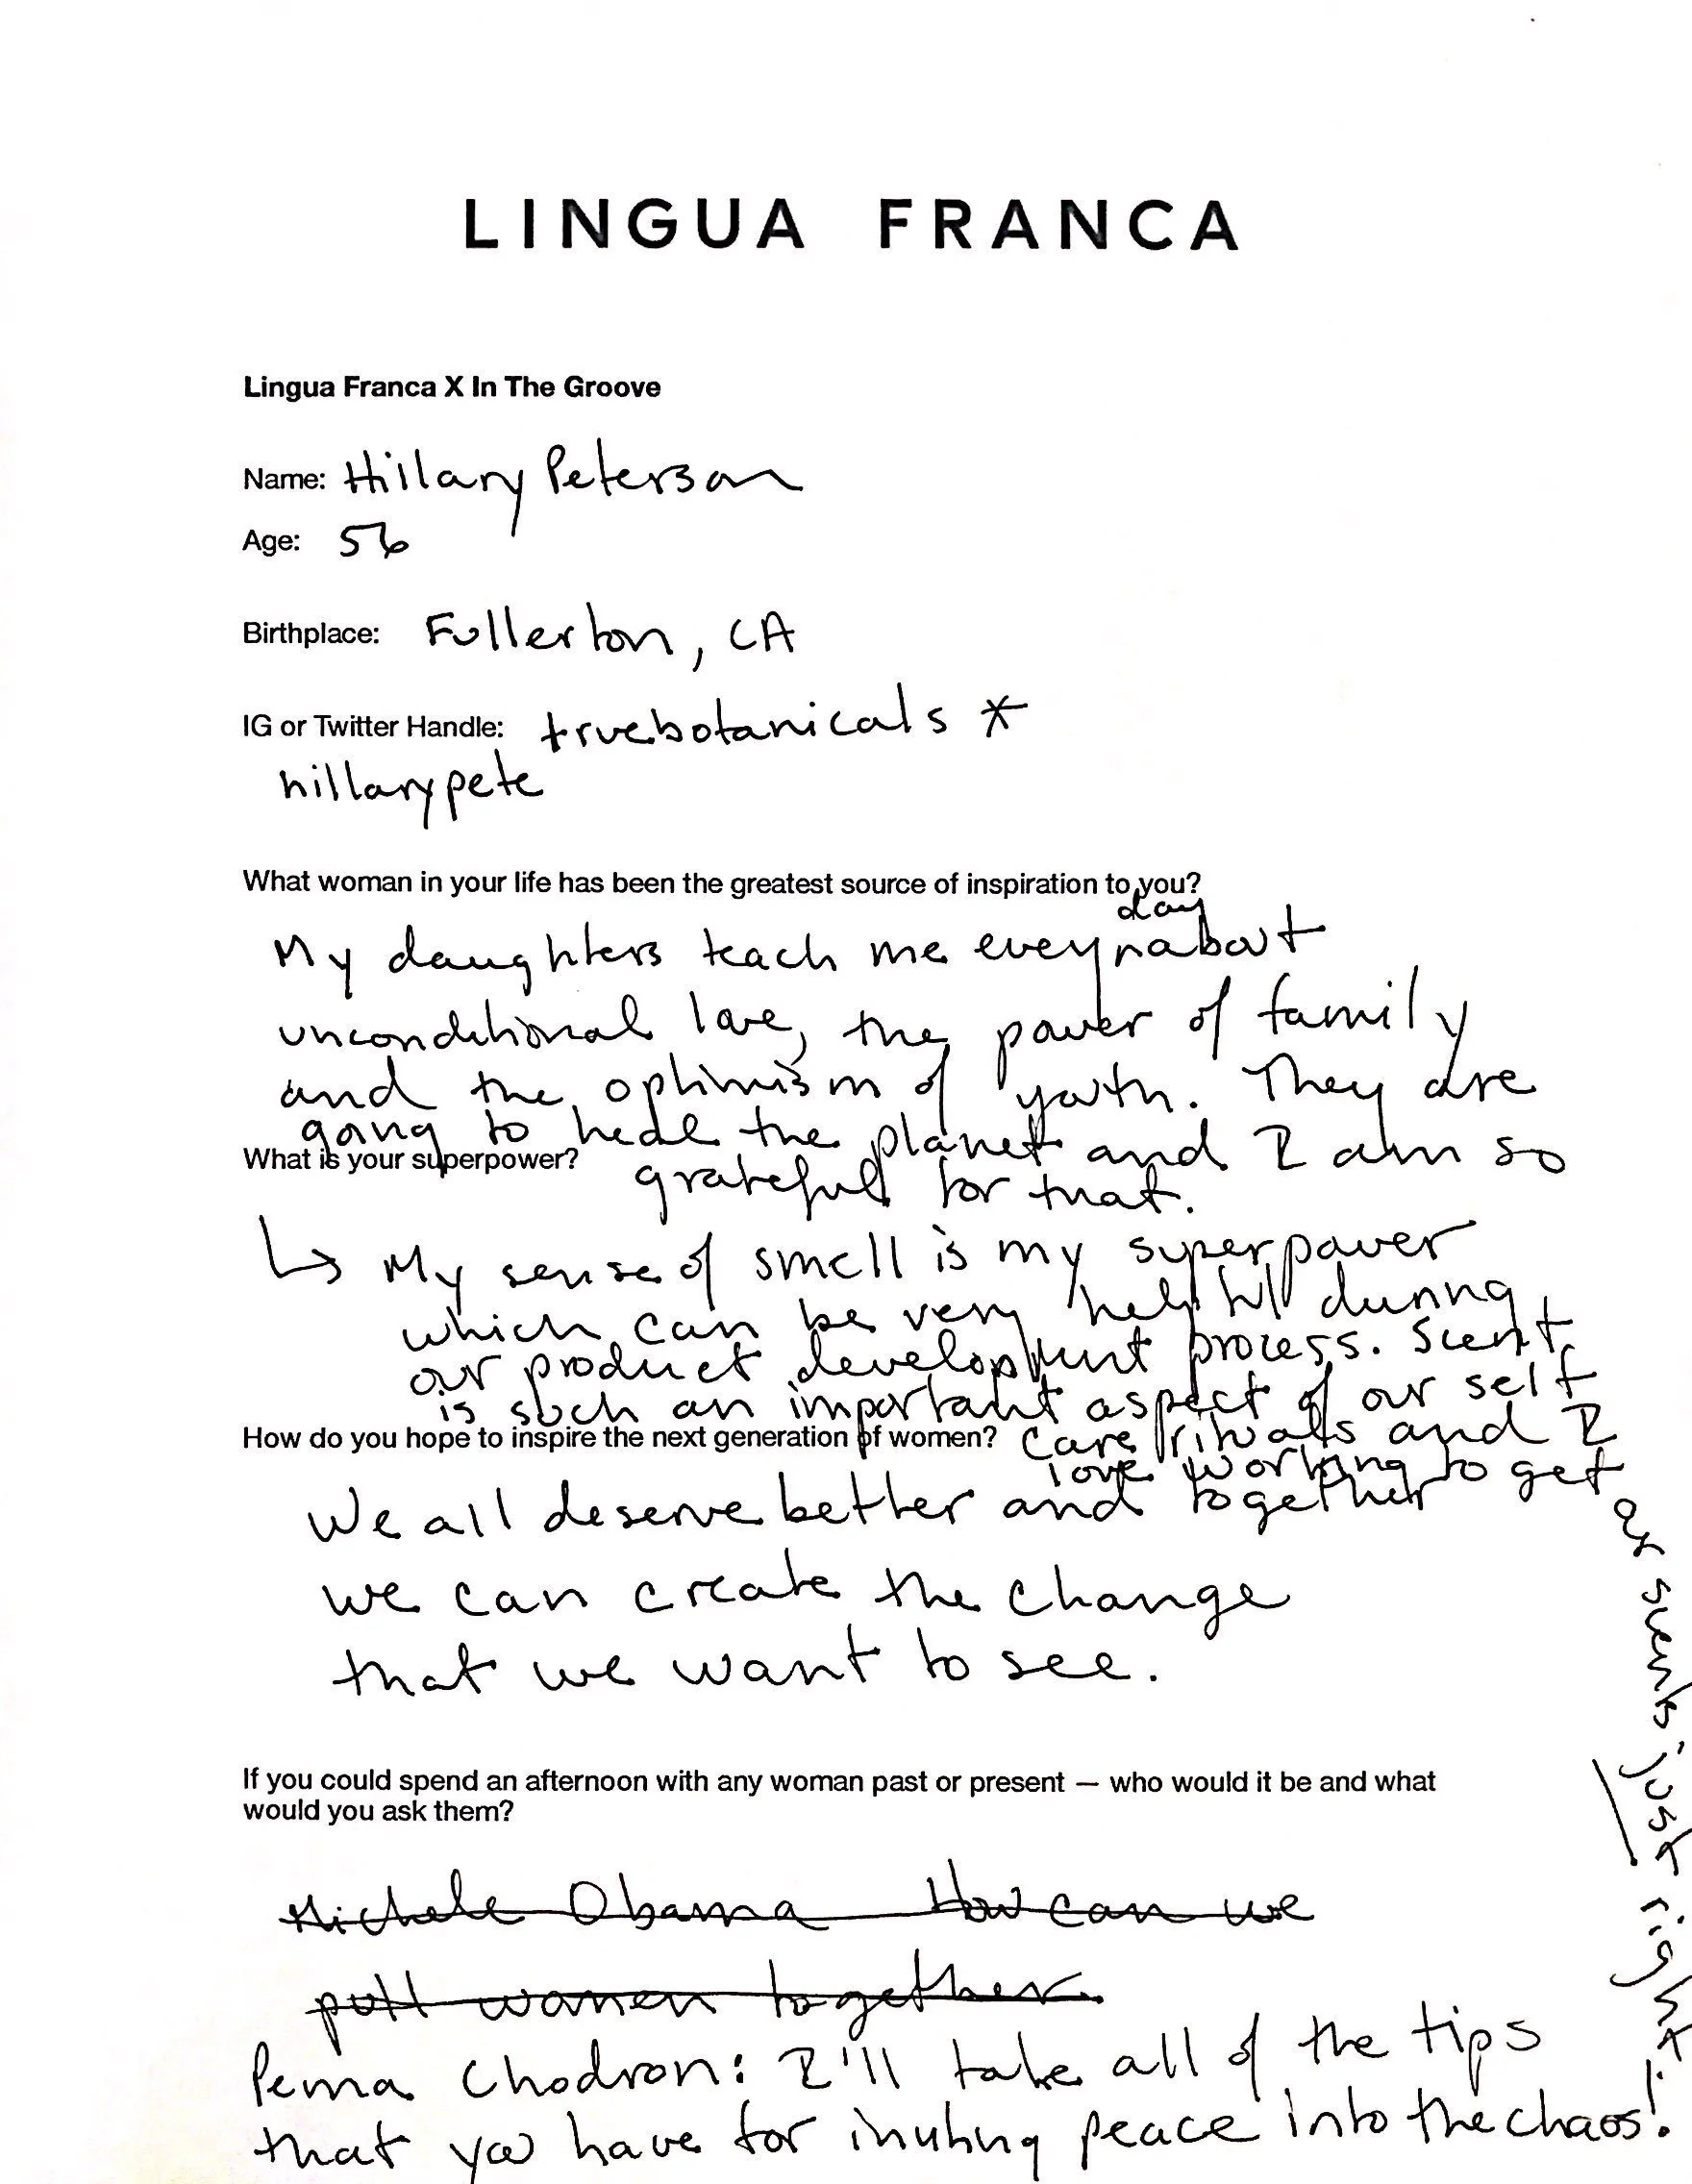 LINGUA FRANCA
Lingua Franca X In The Groove
Name: Hillary Peterson
Age: 56
Birthplace: Fullerton, CA
IG or Twitter Handle: truebotanicals *
hillarypete
What woman in your life has been the greatest source of inspiration to you?
day
My daughters teach me every about
unconditional love, the power of family
and the optimism of youth. They are
going to heal the planet and I am so
What is your superpower?
grateful for that.
↳ My sense of smell is my superpower
which can be very helpful during
our product development process. Scent
is such an important aspect of our self
How do you hope to inspire the next generation of women?
care rituals and I
love working to get
our scents just right!
We all deserve better and together
we can create the change
that we want to see.
If you could spend an afternoon with any woman past or present — who would it be and what
would you ask them?
Michele Obama How can we
pull women together
Pema Chodron: I'll take all of the tips
that you have for inviting peace into the chaos!